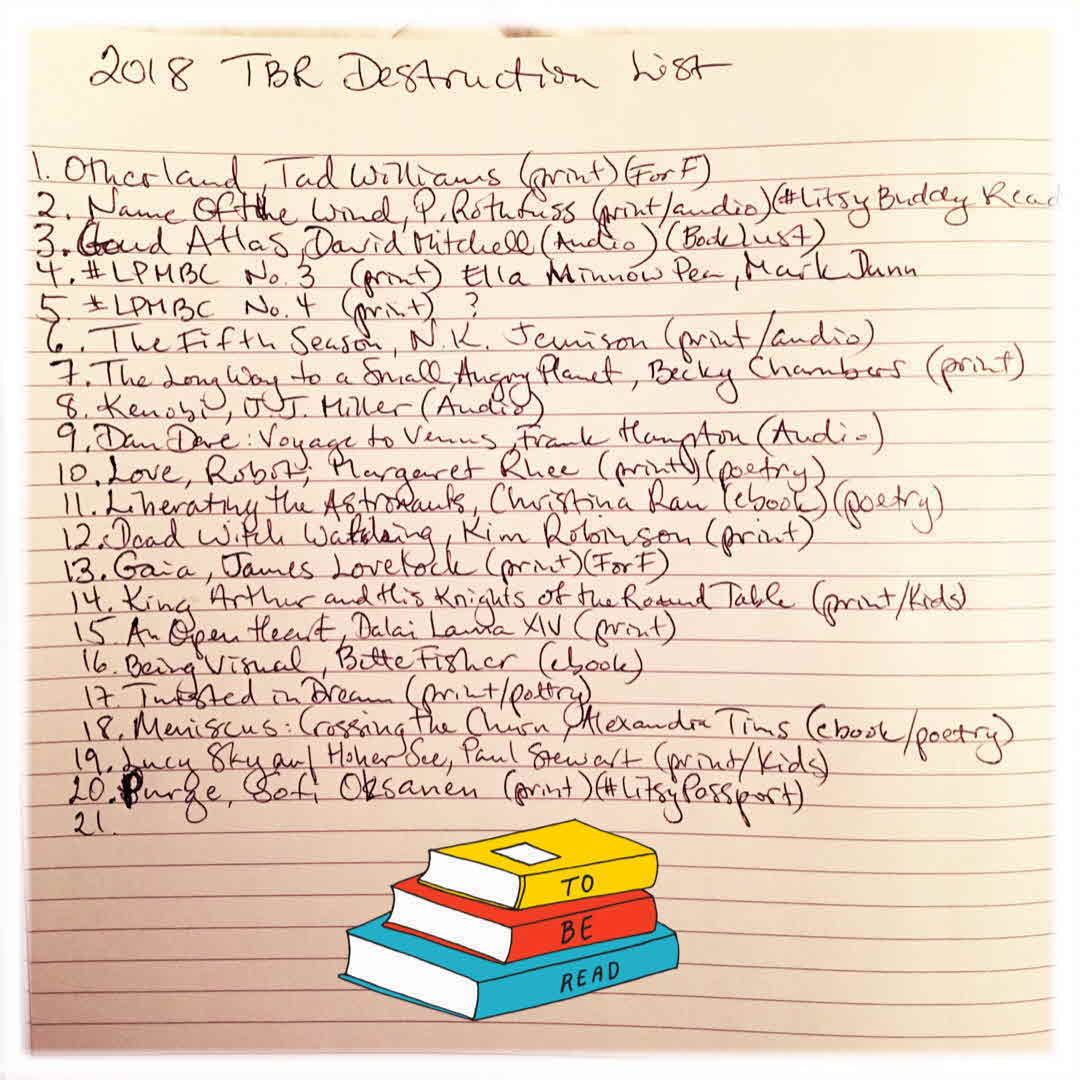 2018 TBR Destruction List
1. Otherland, Tad Williams (print)(For F)
2. Name Of the Wind, P. Rothfuss (print/audio)(#Litsy Buddy Read
3. Cloud Atlas, David Mitchell (Audio) (Booklust)
4. #LPMBC No. 3 (print) Ella Minnow Pea, Mark Dunn
5. #LPMBC No. 4 (print) ?
6. The Fifth Season, N.K. Jemison (print/audio)
7. The Long Way to a Small, Angry Planet, Becky Chambers (print)
8. Kenobi, J.J. Miller (Audio)
9. Dan Dare: Voyage to Venus, Frank Hampton (Audio)
10. Love, Robot, Margaret Rhee (print)(poetry)
11. Liberating the Astronauts, Christina Rau (ebook)(poetry)
12. Dead Witch Walking, Kim Robinson (print)
13. Gaia, James Lovelock (print)(For F)
14. King Arthur and His Knights of the Round Table (print/Kids)
15. An Open Heart, Dalai Lama XIV (print)
16. Being Visual, Bette Fisher (ebook)
17. Twisted in Dream (print/poetry)
18. Meniscus: Crossing the Churn, Alexandra Tims (ebook/poetry)
19. Lucy Sky Hoher See, Paul Stewart (print/Kids)
20. Purge, Sofi Oksanen (print)(#LitsyPassport)
21.
TO
BE
READ